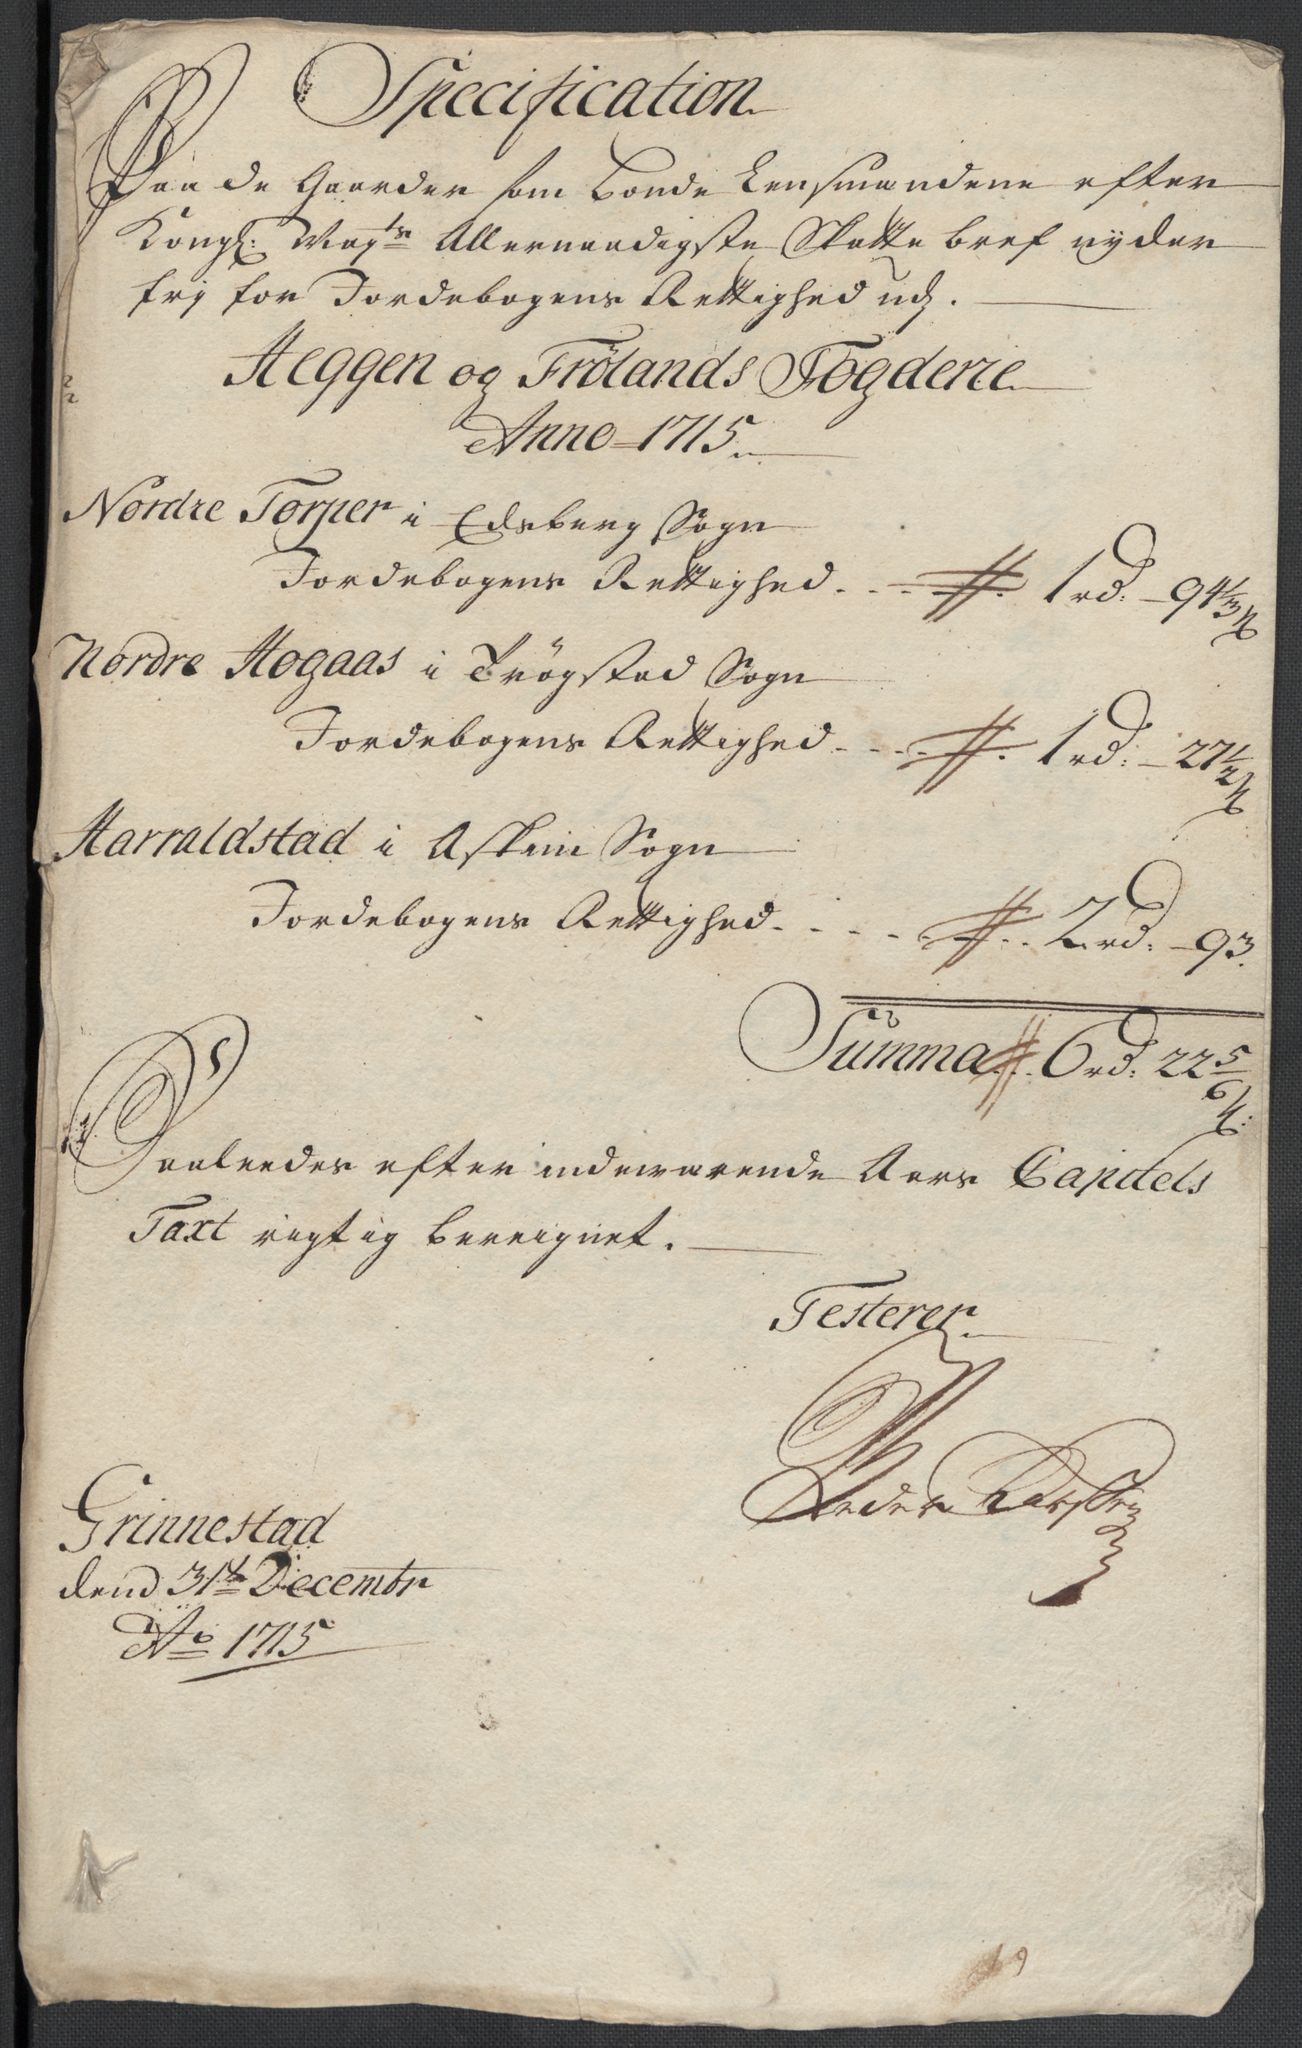 Specification
Paa de Gaarder som Bonde Lensmændene efter
Kongl: Mayts Allernaadigste Skatte bref nyder
frj for Jordebogens Rettighed udj.
Heggen og Frölands Fögderie
Anno 1715
Nordre Törper i Edsberg Sogn
Jordebogens Rettighed . . . 1 rd: 94 1/3 ß
Nordre Hogaas i Trögstad Sogn
Jordebogens Rettighed . . . 1 rd: 27 1/2 ß
Harraldstad i Askim Sogn
Jordebogens Rettighed . . . . . 2 rd: 93
Summa 6 rd: 22 5/6 ß:
Saaleedes efter indeværende Aars Capitels
Taxt rigtig bereignet.
Testerer
Peder Larssen
Grinnestad
dend 31te Decembr
Ao 1715
19